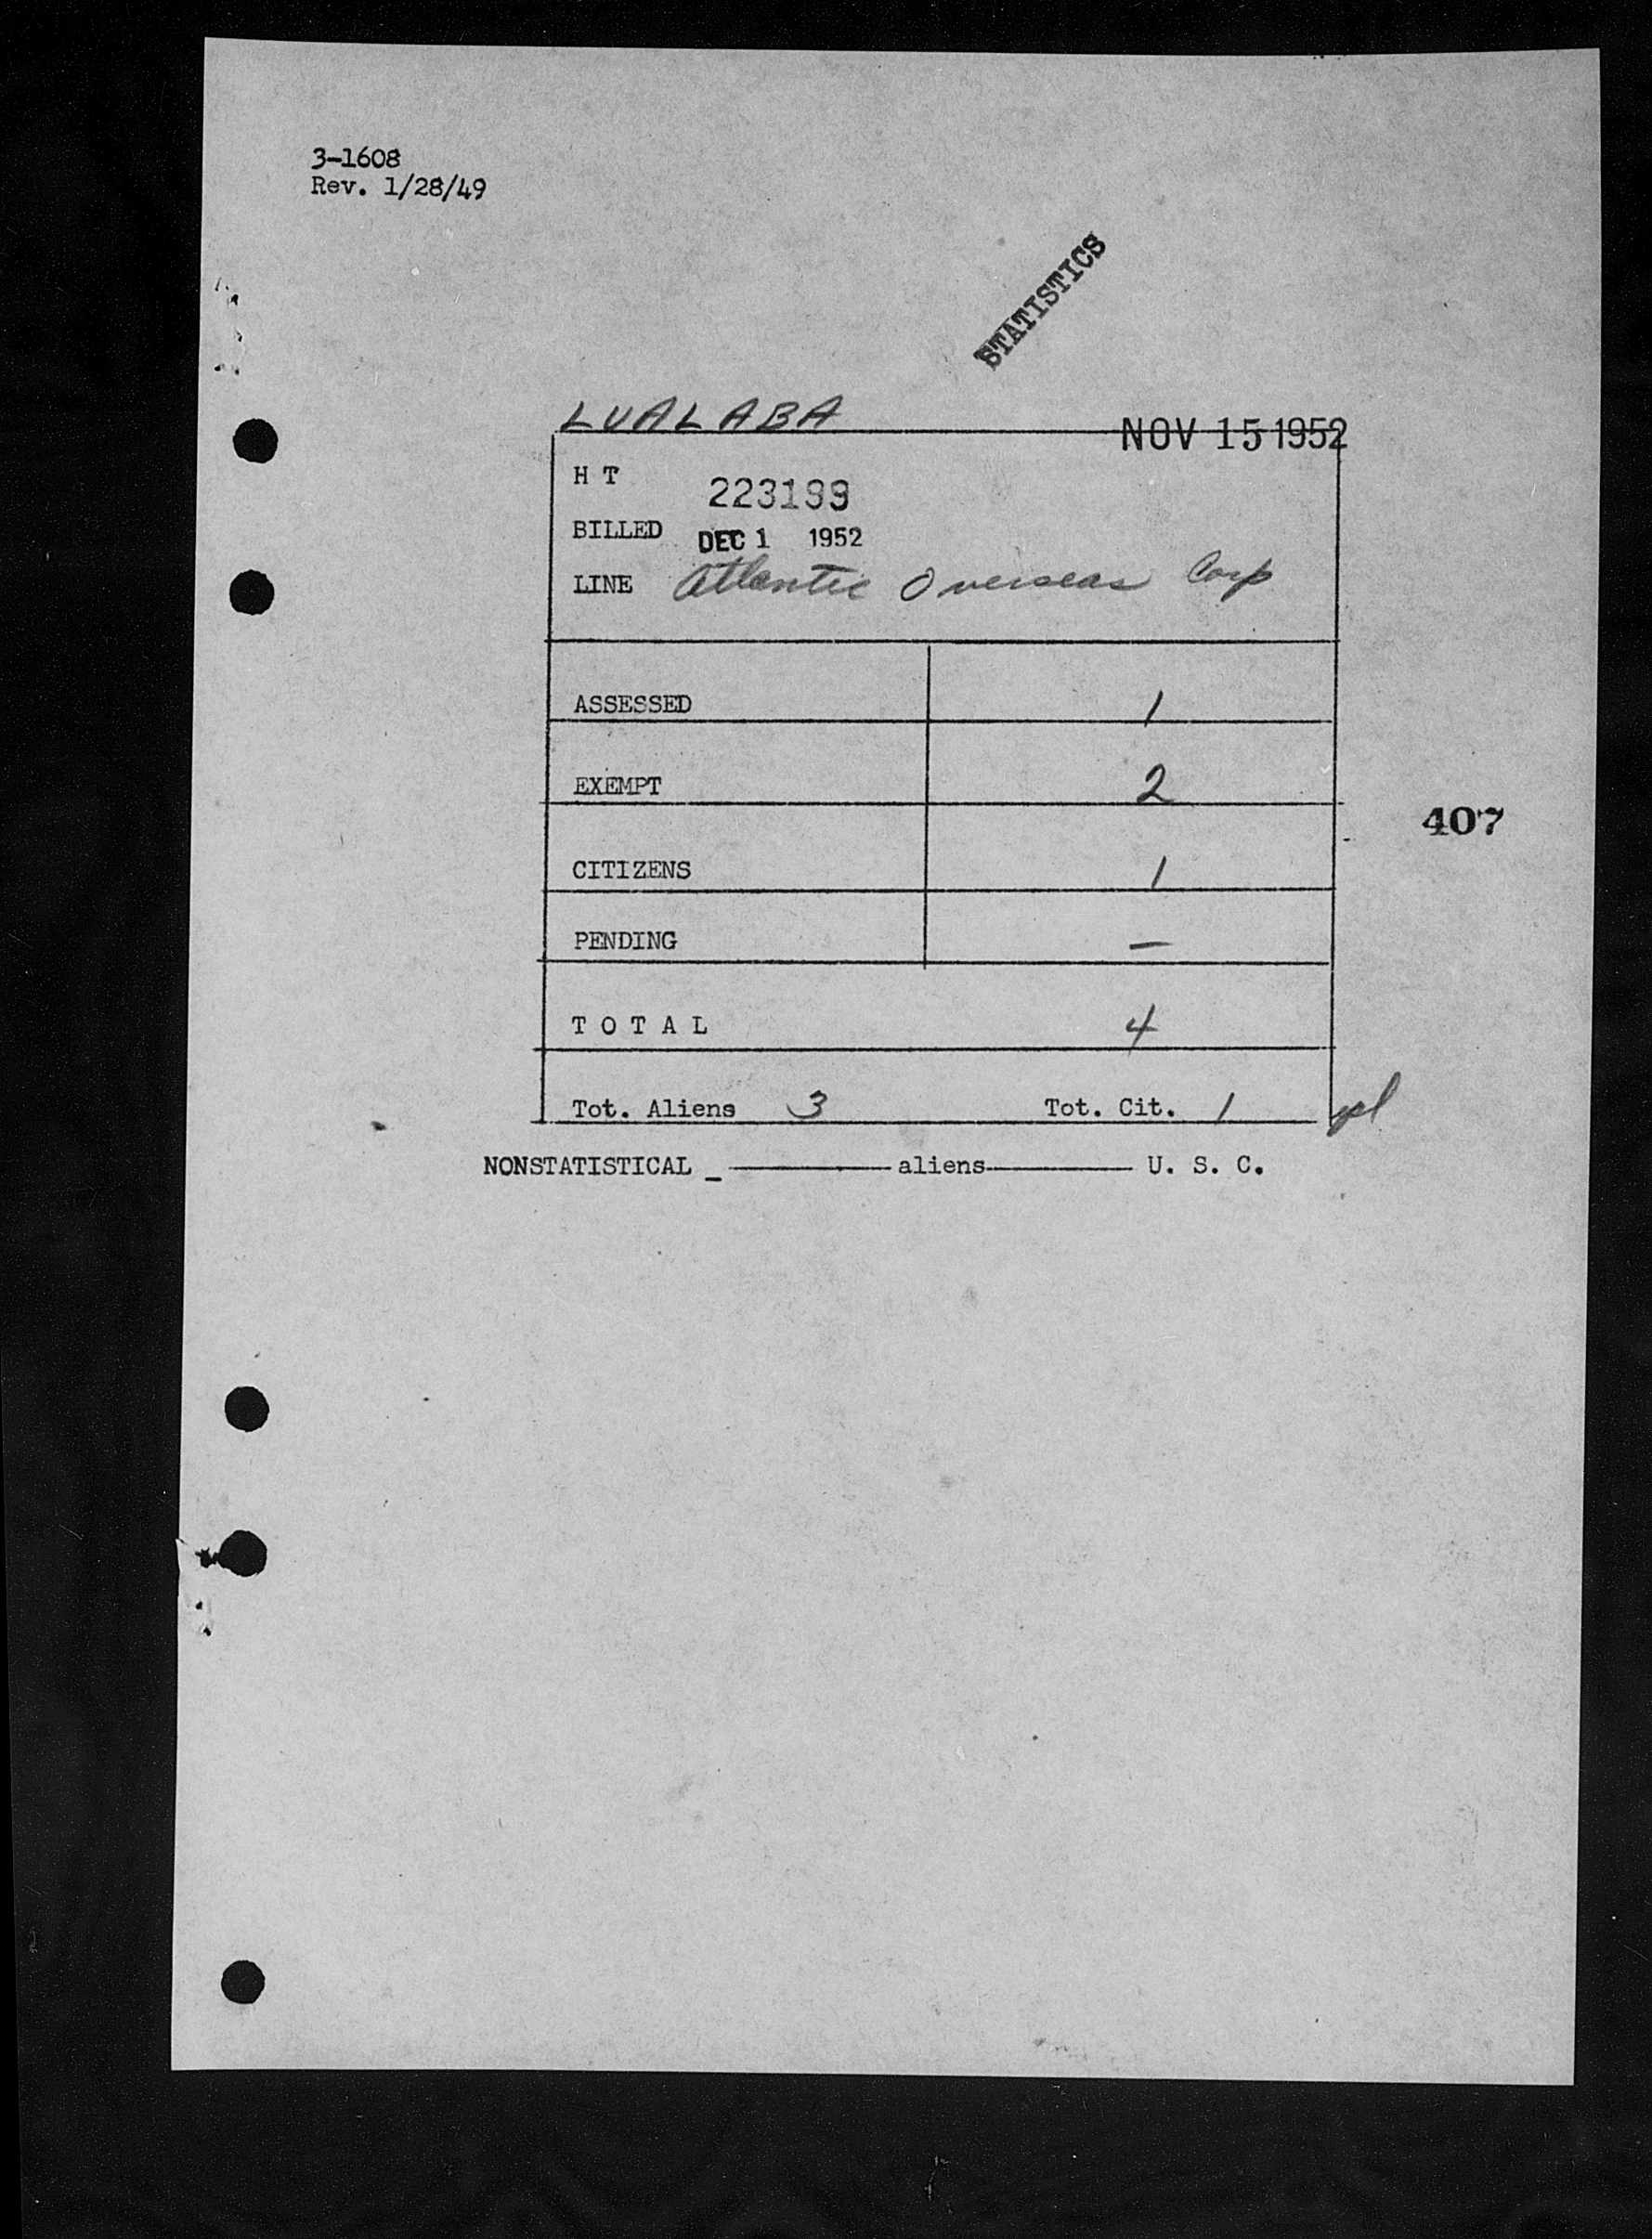 3-1608
Rev. 1/28/49
STATISTICS
LUALABA NOV 15 1952
H T 223199
BILLED DEC 1 1952
LINE Atlantic Overseas Corp
ASSESSED 1
EXEMPT 2
407
CITIZENS 1
PENDING —
T O T A L 4
Tot. Aliens 3 Tot. Cit. 1
NONSTATISTICAL _ ———— aliens ———— U. S. C.